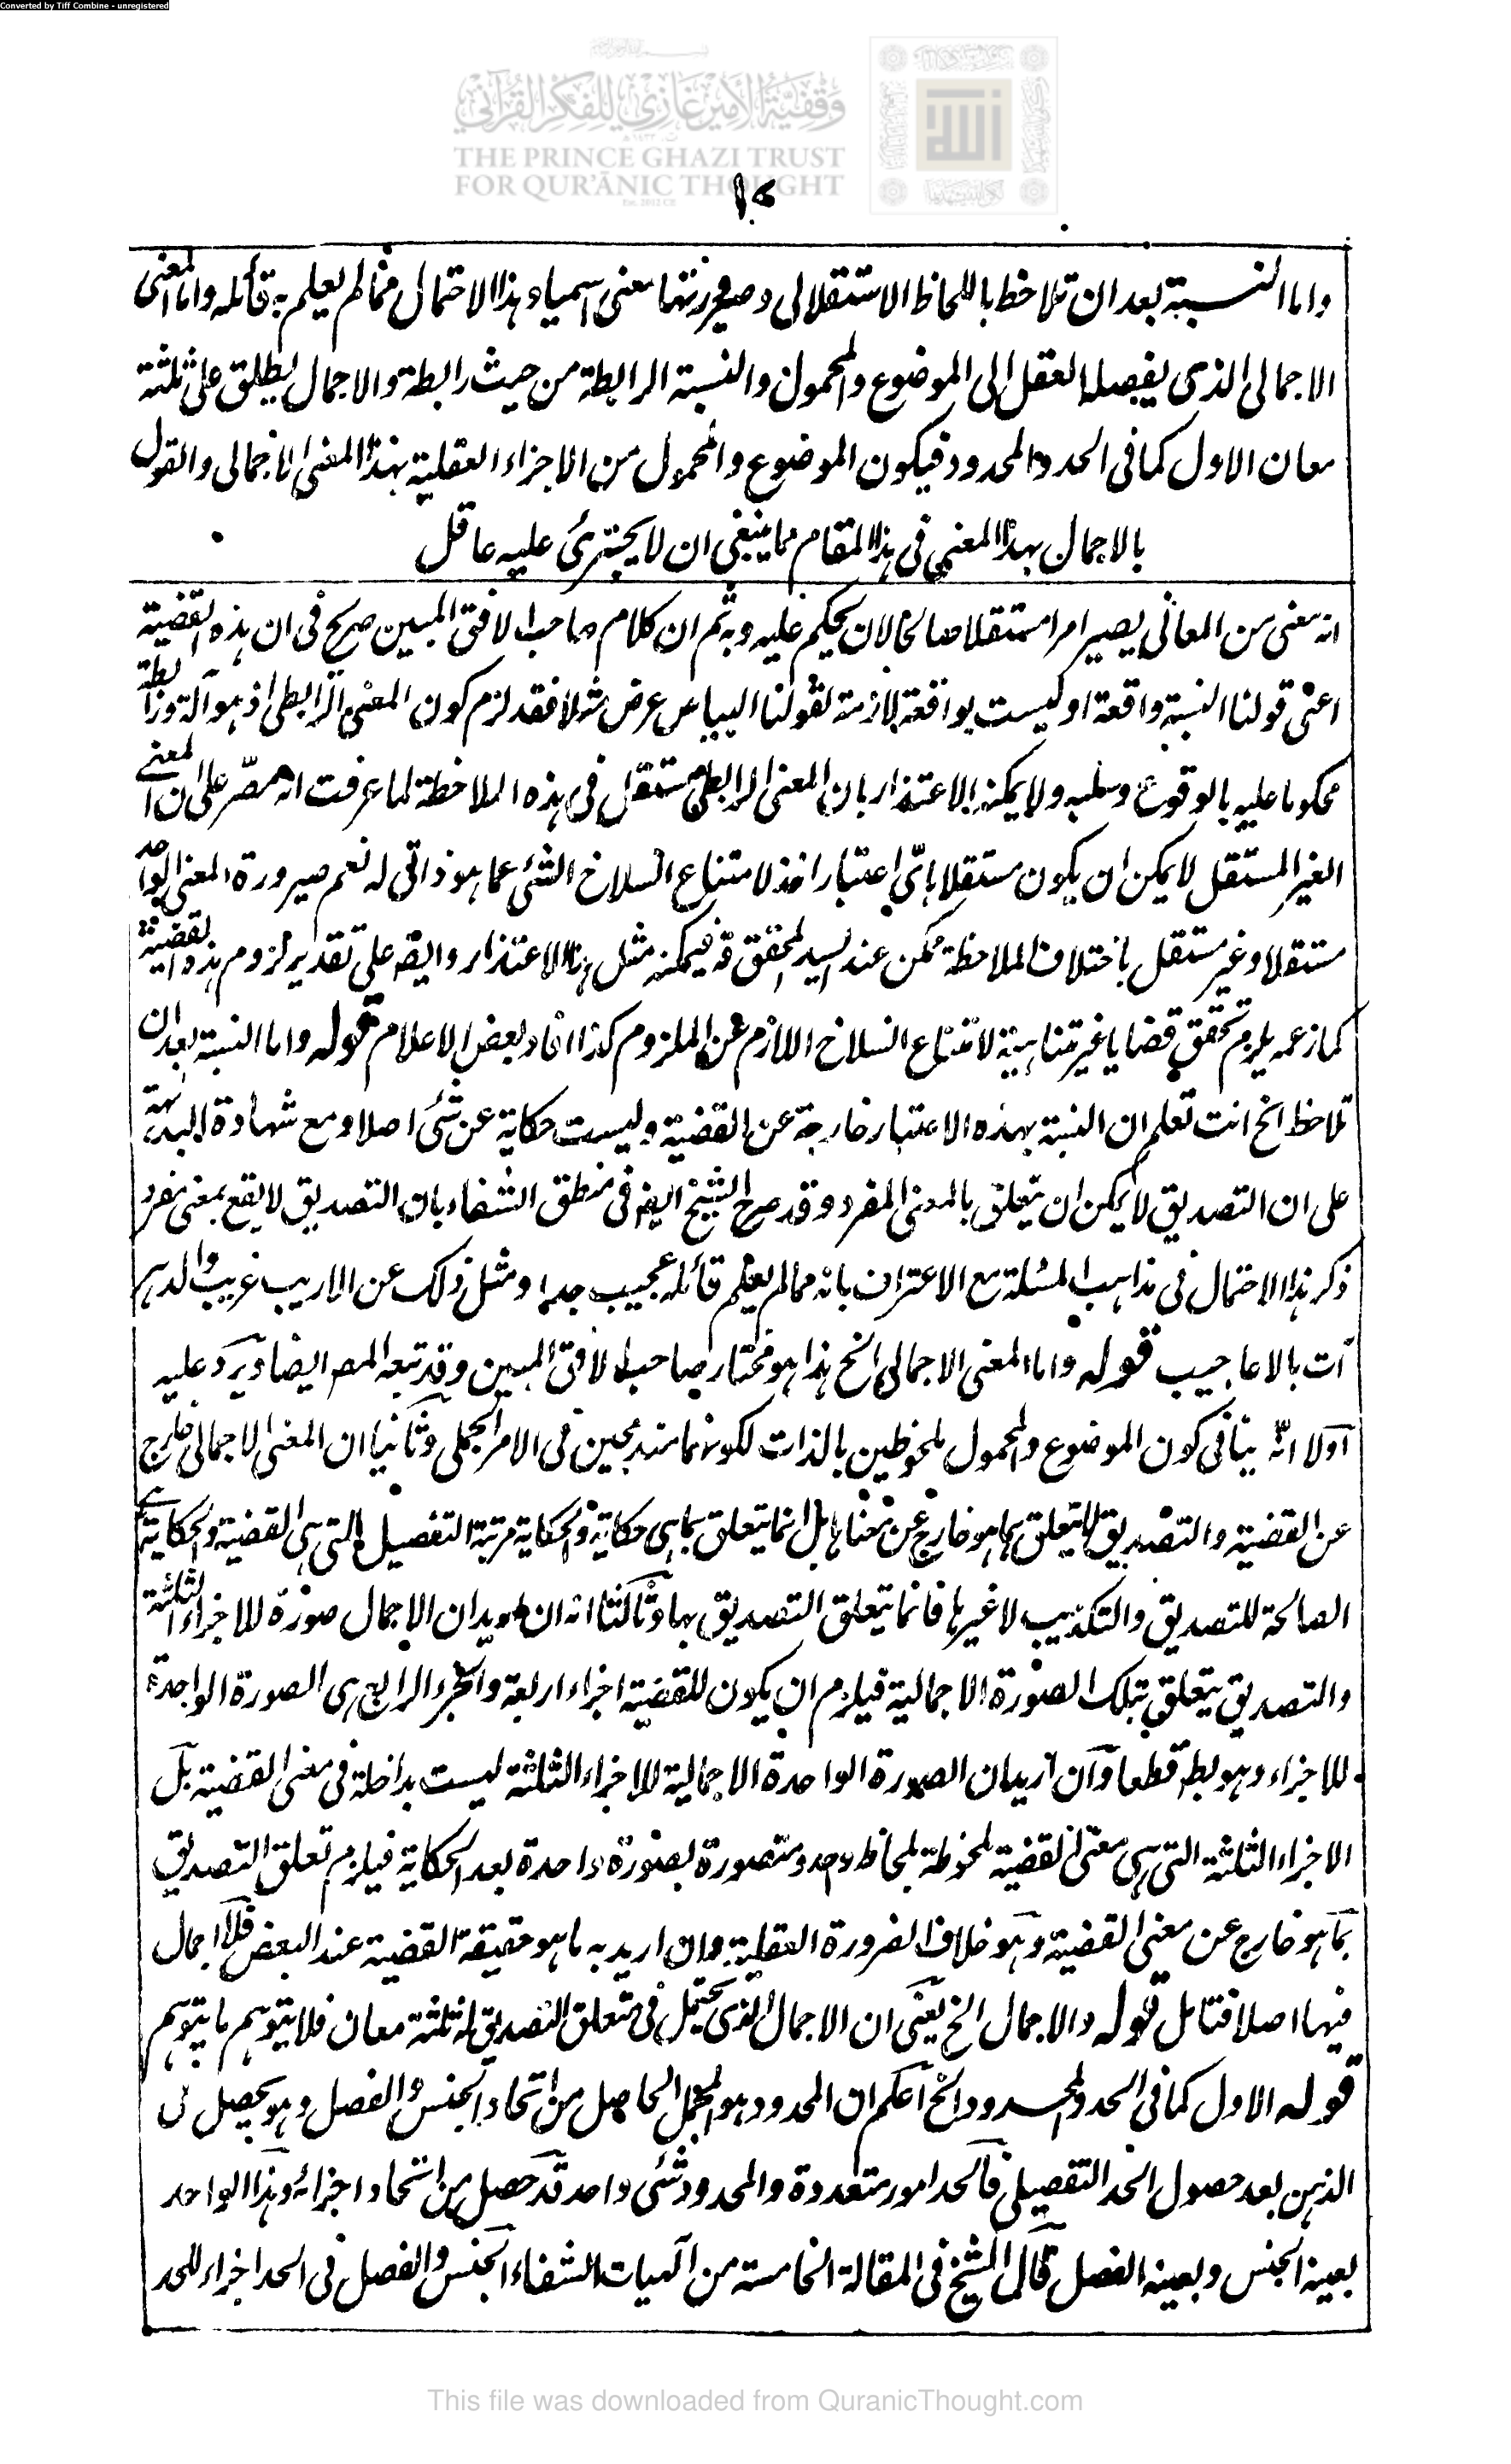 Converted by Tiff Combine - unregistered
وقفية الأمير غازي للفكر القرآني
THE PRINCE GHAZI TRUST
FOR QUR'ĀNIC THOUGHT
واما النسبة بعد ان تلاحظ باللحاظ الاستقلالى وصيرورتها معنى اسميا وهذا الاحتمال مما لم يعلم به قائله واما المعنى
الاجمالى الذى يفصله العقل الى الموضوع والمحمول والنسبة الرابطة من حيث رابطة والاجمال يطلق على ثلثة
معان الاول كما فى الحد والمحدود فيكون الموضوع والمحمول من الاجزاء العقلية بهذا المعنى الاجمالى والقول
بالاجمال بهذا المعنى فى هذا المقام مما ينبغى ان لا يجترئ عليه عاقل
انه معنى من المعانى يصير امرا مستقلا صالحا لان يحكم عليه وبه ثم ان كلام صاحب الافق المبين صريح فى ان هذه القضية
اعنى قولنا النسبة واقعة او ليست بواقعة لازمة لقولنا البياض عرض مثلا فقد لزم كون المعنى الرابطى اذ هو آلة ورابطة
محكوما عليه بالوقوع وسلبه ولا يمكنه الاعتذار بان المعنى الرابطى مستقل فى هذه الملاحظة لما عرفت انه مصر على ان المعنى
الغير المستقل لا يمكن ان يكون مستقلا باى اعتبار اخذ لامتناع انسلاخ الشئ عما هو ذاتى له نعم صيرورة المعنى الواحد
مستقلا وغير مستقل باختلاف الملاحظة ممكن عند السيد المحقق قه فيمكنه مثل هذا الاعتذار وايضا على تقدير لزوم هذه القضية
كما زعمه يلزم تحقق قضايا غير متناهية لامتناع انسلاخ اللازم عن الملزوم كذا افاد بعض الاعلام قوله واما النسبة بعد ان
تلاحظ الخ انت تعلم ان النسبة بهذه الاعتبار خارجة عن القضية وليست حكاية عن شئ اصلا ومع شهادة البديهة
على ان التصديق لا يمكن ان يتعلق بالمعنى المفرد وقد صرح الشيخ ايضا فى منطق الشفاء بان التصديق لا يقع بمعنى مفرد
ذكر هذا الاحتمال فى مذاهب المسئلة مع الاعتراف بانه مما لم يعلم قائله عجيب جدا ومثل ذلك عن الاريب غريب والدهر
آت بالاعاجيب قوله واما المعنى الاجمالى الخ هذا هو مختار صاحب الافق المبين وقد تبعه المصـ ايضا ويرد عليه
اولا انه ينافى كون الموضوع والمحمول ملحوظين بالذات لكونهما مندمجين فى الامر المجمل وثانيا ان المعنى الاجمالى خارج
عن القضية والتصديق لا يتعلق بما هو خارج عن معناها بل انما يتعلق بما هى حكاية والحكاية مرتبة التفصيل التى هى القضية والحكاية هى
الصالحة للتصديق والتكذيب لا غيرها فانما يتعلق التصديق بها وثالثا انه ان اريد ان الاجمال صورة للاجزاء الثلثة
والتصديق يتعلق بتلك الصورة الاجمالية فيلزم ان يكون للقضية اجزاء اربعة والجزء الرابع هى الصورة الواحدة
للاجزاء وهو بط قطعا وان اريد ان الصورة الواحدة الاجمالية للاجزاء الثلثة ليست بداخلة فى معنى القضية بل
الاجزاء الثلثة التى هى معنى القضية ملحوظة بلحاظ واحد ومتصورة بصورة واحدة بعد الحكاية فيلزم تعلق التصديق
بما هو خارج عن معنى القضية وهو خلاف الضرورة العقلية وان اريد به ما هو حقيقة القضية عند البعض فلا اجمال
فيها اصلا فتامل قوله والاجمال الخ يعنى ان الاجمال الذى يحتمل فى متعلق التصديق له ثلثة معان فلا يتوهم ما يتوهم
قوله الاول كما فى الحد والمحدود الخ اعلم ان المحدود هو المجمل الحاصل من اتحاد الجنس والفصل وهو يحصل فى
الذهن بعد حصول الحد التفصيلى فالحد امور متعددة والمحدود شئ واحد قد حصل من اتحاد اجزائه وهذا الواحد
بعينه الجنس وبعينه الفصل قال الشيخ فى المقالة الخامسة من آلهيات الشفاء الجنس والفصل فى الحد اجزاء للحد
This file was downloaded from QuranicThought.com